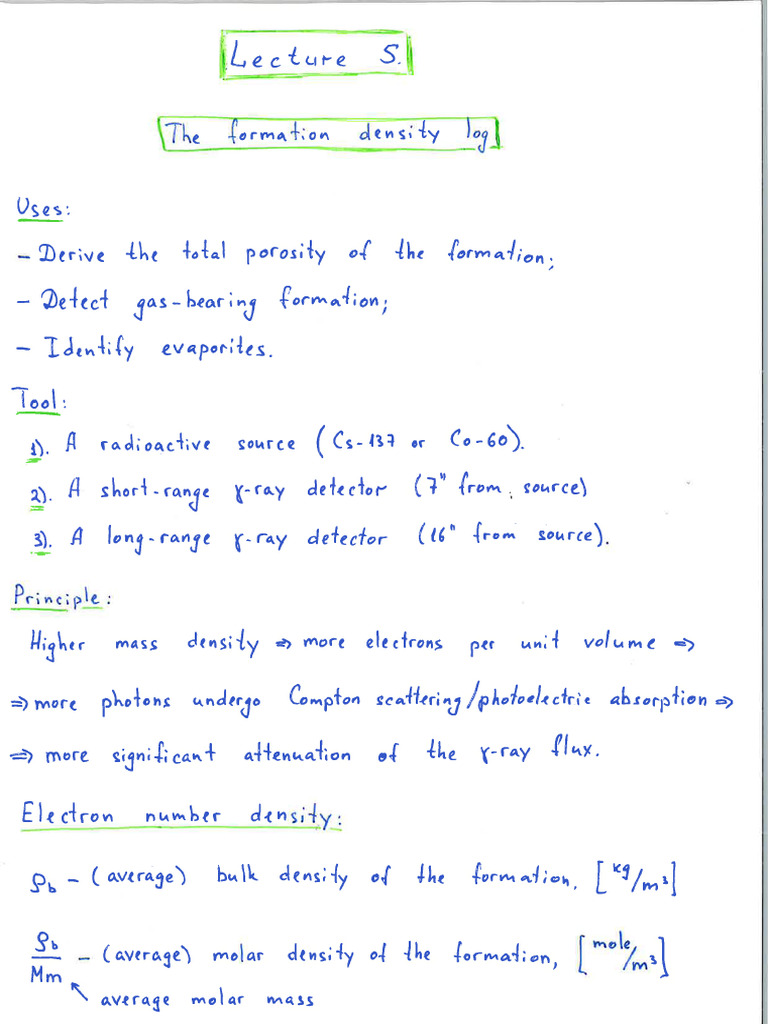 Lecture 5.
The formation density log
Uses:
- Derive the total porosity of the formation;
- Detect gas-bearing formation;
- Identify evaporites.
Tool:
1). A radioactive source (Cs-137 or Co-60).
2). A short-range γ-ray detector (7" from source)
3). A long-range γ-ray detector (16" from source).
Principle:
Higher mass density ⇒ more electrons per unit volume ⇒
⇒ more photons undergo Compton scattering/photoelectric absorption ⇒
⇒ more significant attenuation of the γ-ray flux.
Electron number density:
ρb - (average) bulk density of the formation, [kg/m³]
ρb/Mm - (average) molar density of the formation, [mole/m³]
average molar mass